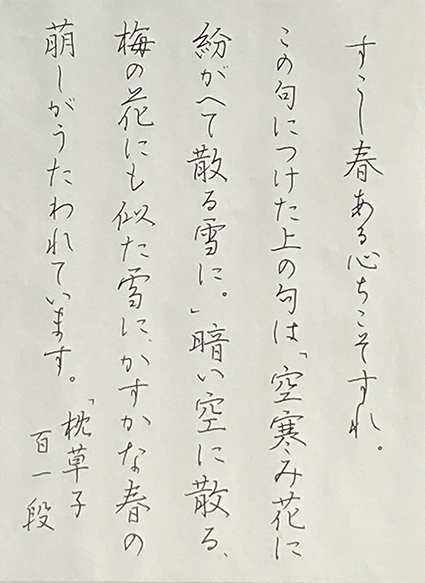 すこし春ある心ちこそすれ。
この句につけた上の句は、「空寒み花に
紛がへて散る雪に。」暗い空に散る、
梅の花にも似た雪に、かすかな春の
萌しがうたわれています。
「枕草子
百一段